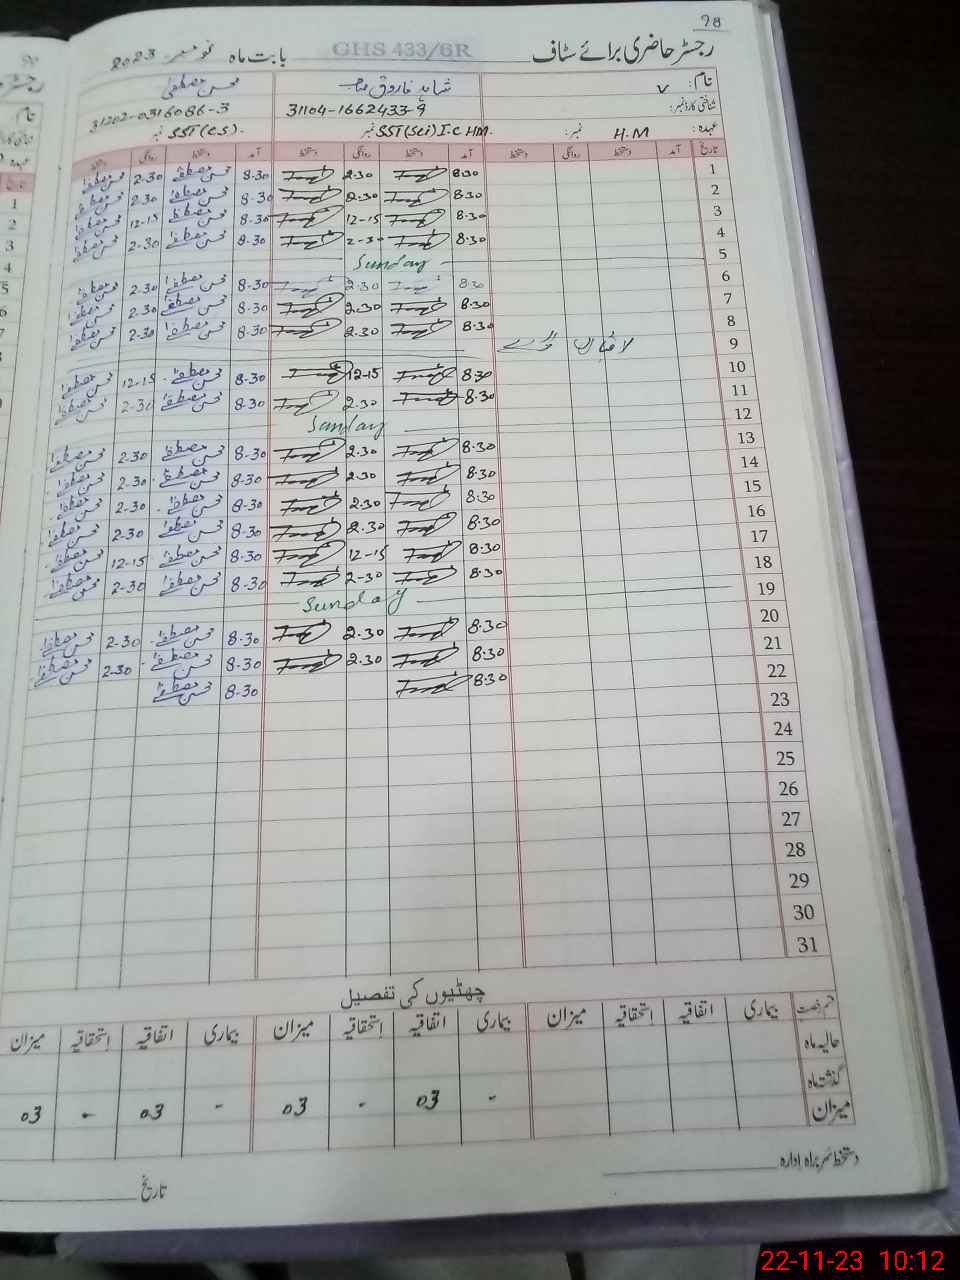 98
رجسٹر حاضری برائے سٹاف GHS 433/6R بابت ماہ نومبر 2023
نام: V شاہد فاروق محسن مصطفیٰ
شناختی کارڈ نمبر: 31104-1662433-9 31202-0316086-3
عہدہ: H.M نمبر: SST(Sci) I.C HM. نمبر SST(C.S). نمبر
تاریخ آمد دستخط روانگی دستخط آمد دستخط روانگی دستخط آمد دستخط روانگی دستخط
1 8.30 2.30 8.30 محسن مصطفیٰ 2.30 محسن مصطفیٰ
2 8.30 2.30 8.30 محسن مصطفیٰ 2.30 محسن مصطفیٰ
3 8.30 12-15 8.30 محسن مصطفیٰ 12-15 محسن مصطفیٰ
4 8.30 2-30 8.30 محسن مصطفیٰ 2.30 محسن مصطفیٰ
5 Sunday
6 8.30 2.30 8.30 محسن مصطفیٰ 2.30 محسن مصطفیٰ
7 8.30 2.30 8.30 محسن مصطفیٰ 2.30 محسن مصطفیٰ
8 8.30 2.30 8.30 محسن مصطفیٰ 2.30 محسن مصطفیٰ
9 ڈے
10 8.30 12-15 8.30 محسن مصطفیٰ 12-15 محسن مصطفیٰ
11 8.30 2.30 8.30 محسن مصطفیٰ 2-30 محسن مصطفیٰ
12 Sunday
13 8.30 2.30 8.30 محسن مصطفیٰ 2.30 محسن مصطفیٰ
14 8.30 2.30 8.30 محسن مصطفیٰ 2.30 محسن مصطفیٰ
15 8.30 2.30 8.30 محسن مصطفیٰ 2.30 محسن مصطفیٰ
16 8.30 2.30 8.30 محسن مصطفیٰ 2.30 محسن مصطفیٰ
17 8.30 12-15 8.30 محسن مصطفیٰ 12-15 محسن مصطفیٰ
18 8.30 2-30 8.30 محسن مصطفیٰ 2-30 محسن مصطفیٰ
19 Sunday
20 8.30 2.30 8.30 محسن مصطفیٰ 2-30 محسن مصطفیٰ
21 8.30 2.30 8.30 محسن مصطفیٰ 2.30 محسن مصطفیٰ
22 8.30 8.30 محسن مصطفیٰ
23
24
25
26
27
28
29
30
31
چھٹیوں کی تفصیل
قسم رخصت بیماری اتفاقیہ استحقاقیہ میزان بیماری اتفاقیہ استحقاقیہ میزان بیماری اتفاقیہ استحقاقیہ میزان
حالیہ ماہ
گذشتہ ماہ
میزان - 03 - 03 - 03 - 03
دستخط سربراہ ادارہ
تاریخ
22-11-23 10:12